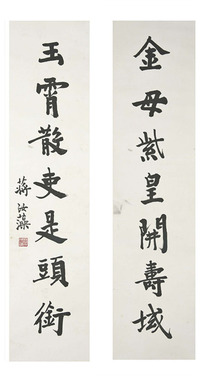 金母紫皇開壽域
玉霄散吏是頭銜
蔣汝藻